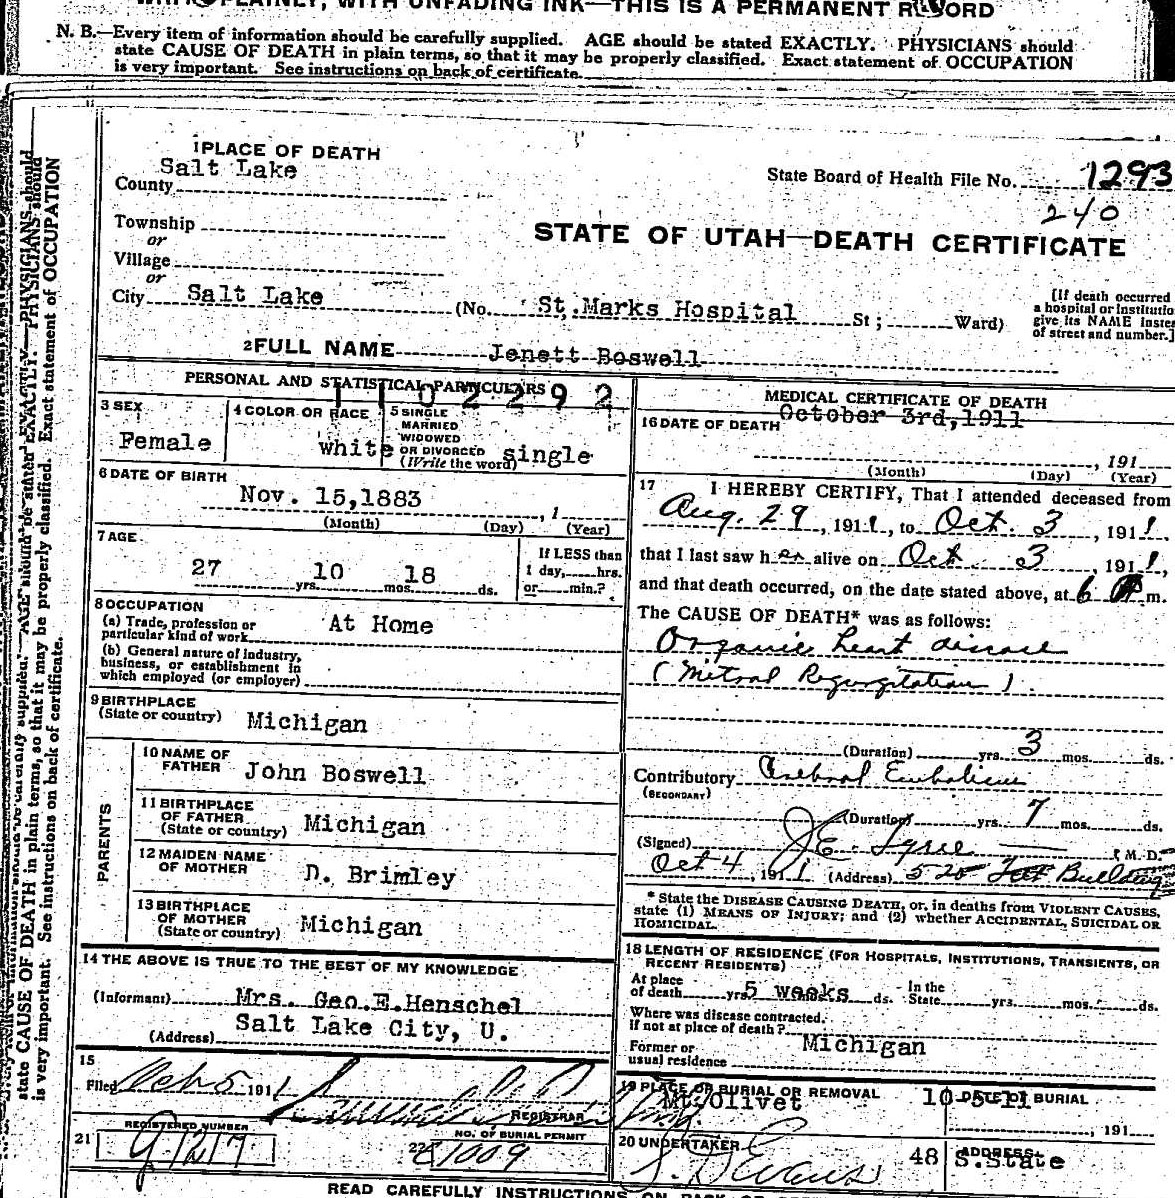 WITH UNFADING INK—THIS IS A PERMANENT RECORD
N. B.—Every item of information should be carefully supplied. AGE should be stated EXACTLY. PHYSICIANS should
state CAUSE OF DEATH in plain terms, so that it may be properly classified. Exact statement of OCCUPATION
is very important. See instructions on back of certificate.
1 PLACE OF DEATH
Salt Lake
County
State Board of Health File No. 1293
240
Township
or
STATE OF UTAH—DEATH CERTIFICATE
Village
or
City Salt Lake (No. St. Marks Hospital St; Ward)
[If death occurred
a hospital or institutio
give its NAME instea
of street and number.]
2 FULL NAME Jenett Boswell
PERSONAL AND STATISTICAL PARTICULARS
1102292
3 SEX
Female
4 COLOR OR RACE
white
5 SINGLE
MARRIED
WIDOWED
OR DIVORCED
(Write the word)
single
6 DATE OF BIRTH
Nov. 15,1883 , 1
(Month) (Day) (Year)
7 AGE
27 yrs. 10 mos. 18 ds.
If LESS than
1 day, hrs.
or min.?
8 OCCUPATION
(a) Trade, profession or
particular kind of work
At Home
(b) General nature of industry,
business, or establishment in
which employed (or employer)
9 BIRTHPLACE
(State or country) Michigan
PARENTS
10 NAME OF
FATHER John Boswell
11 BIRTHPLACE
OF FATHER
(State or country) Michigan
12 MAIDEN NAME
OF MOTHER D. Brimley
13 BIRTHPLACE
OF MOTHER
(State or country) Michigan
14 THE ABOVE IS TRUE TO THE BEST OF MY KNOWLEDGE
(Informant) Mrs. Geo.E.Henschel
(Address) Salt Lake City, U.
15
Filed Oct 5 1911
REGISTRAR
REGISTERED NUMBER
21 G1217
NO. OF BURIAL PERMIT
22 E1009
MEDICAL CERTIFICATE OF DEATH
16 DATE OF DEATH October 3rd,1911
, 191
(Month) (Day) (Year)
17 I HEREBY CERTIFY, That I attended deceased from
Aug. 29, 1911, to Oct. 3, 1911,
that I last saw her alive on Oct. 3, 1911,
and that death occurred, on the date stated above, at 6 m.
The CAUSE OF DEATH* was as follows:
Organic heart disease
(Mitral Regurgitation)
(Duration) yrs. 3 mos. ds.
Contributory Cerebral Embolism
(SECONDARY)
(Duration) yrs. 7 mos. ds.
(Signed) J.E. Tyree M. D.
Oct 4, 1911 (Address) 520 Building
* State the DISEASE CAUSING DEATH, or, in deaths from VIOLENT CAUSES,
state (1) MEANS OF INJURY; and (2) whether ACCIDENTAL, SUICIDAL OR
HOMICIDAL.
18 LENGTH OF RESIDENCE (FOR HOSPITALS, INSTITUTIONS, TRANSIENTS, OR
RECENT RESIDENTS)
At place
of death yrs. 5 weeks ds. In the
State yrs. mos. ds.
Where was disease contracted,
if not at place of death?
Former or
usual residence Michigan
19 PLACE OF BURIAL OR REMOVAL
Mt. Olivet
DATE OF BURIAL
10-5-11
, 191
20 UNDERTAKER
S. D. Evans
ADDRESS
48 S.State
READ CAREFULLY INSTRUCTIONS ON BACK OF
state CAUSE OF DEATH in plain terms, so that it may be properly classified. Exact statement of OCCUPATION
is very important. See instructions on back of certificate.